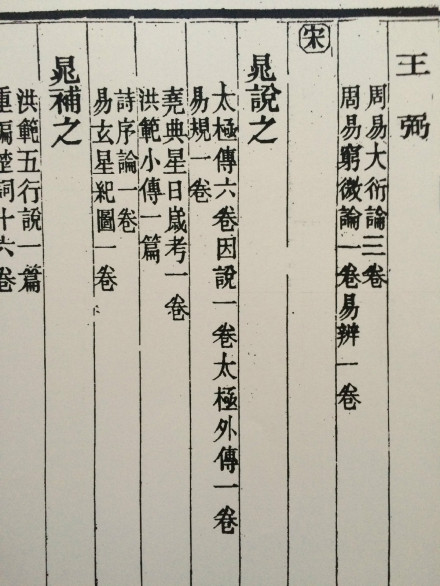 王弼
周易大衍論三卷
周易窮微論一卷易辨一卷
宋
晁說之
太極傳六卷因說一卷太極外傳一卷
易規一卷
堯典星日歲考一卷
洪範小傳一篇
詩序論一卷
易玄星紀圖一卷
晁補之
洪範五行說一篇
重編楚詞十六卷